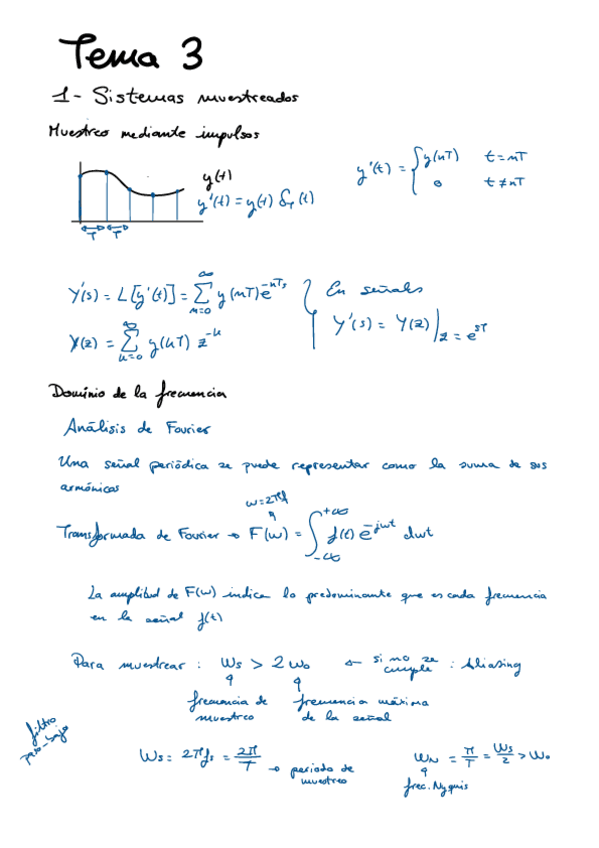 Tema 3
1- Sistemas muestreados
Muestreo mediante impulsos
y(t)
y'(t) = y(t) δ_T(t)
T T
y'(t) = { y(nT) t = nT
0 t ≠ nT
Y'(s) = L[y'(t)] = ∑_{n=0}^{∞} y(nT) e^{-nTs}
Y(z) = ∑_{k=0}^{∞} y(kT) z^{-k}
En señales
Y'(s) = Y(z)|_{z = e^{sT}}
Dominio de la frecuencia
Análisis de Fourier
Una señal periódica se puede representar como la suma de sus
armónicos
w = 2πf
Transformada de Fourier → F(w) = ∫_{-∞}^{+∞} f(t) e^{-jwt} dwt
La amplitud de F(w) indica lo predominante que es cada frecuencia
en la señal f(t)
Para muestrear : Ws > 2 wo ← si no se cumple : Aliasing
frecuencia de muestreo
frecuencia máxima de la señal
filtro
paso-bajo
Ws = 2πfs = 2π/T → periodo de muestreo
W_N = π/T = Ws/2 > Wo
frec. Nyquis